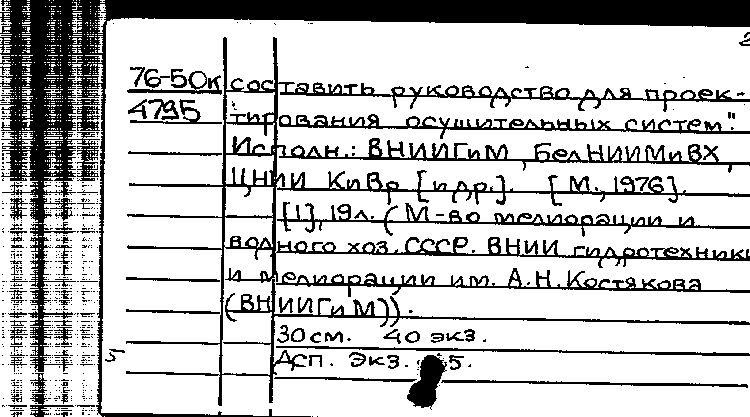 76-50к составить руководство для проек-
4795 тирования осушительных систем".
Исполн.: ВНИИГиМ, БелНИИМиВХ,
ЦНИИ КиВр [и др.]. [М., 1976].
[1], 19л. (М-во мелиорации и
водного хоз. СССР. ВНИИ гидротехники
и мелиорации им. А.Н.Костякова
(ВНИИГиМ)).
30см. 40 экз.
5 Дсп. Экз. 5.